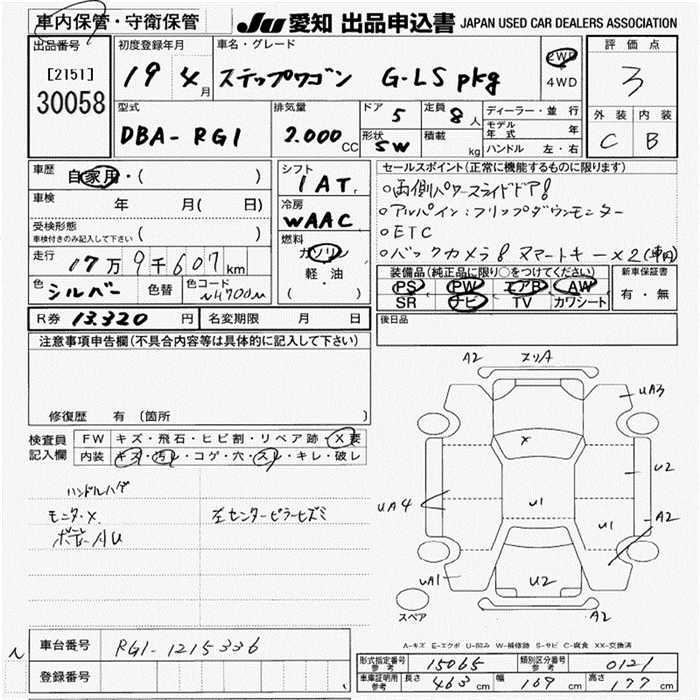 車内保管・守衛保管
JU 愛知 出品申込書 JAPAN USED CAR DEALERS ASSOCIATION
出品番号
[2151]
30058
初度登録年月
19 4月
車名・グレード
ステップワゴン G-LS pkg
2WD
4WD
評価点
3
外装 内装
C B
型式
DBA-RG1
排気量
2.000 CC
ドア 5
形状 SW
定員 8人
積載 kg
ディーラー・並行
モデル年式 年
ハンドル 左・右
車歴
自家用・( )
車検 年 月( 日)
受検形態
車検付きのみ記入して下さい ( )
走行 17万9千607km
色 シルバー 色替 色コード NH700M
シフト
IAT
冷房
WAAC
燃料
ガソリン
軽・油
( )
セールスポイント(正常に機能するものに限ります)
○両側パワースライドドア!
○アルパイン:フリップダウンモニター
○ETC
○バックカメラ 8 スマートキー×2(車内)
装備品(純正品に限り○をつけてください)
PS PW エアB AW
SR ナビ TV カワシート
新車保証書
有・無
R券 13.320 円 名変期限 月 日
後日品
注意事項申告欄(不具合内容等は具体的に記入して下さい)
修復歴 有(箇所 )
検査員
記入欄
FW キズ・飛石・ヒビ割・リペア跡・X要
内装 キズ・汚レ・コゲ・穴・スレ・キレ・破レ
ハンドルハゲ
モニタ・X
左センターピラーヒズミ
ボデーAU
A2
スリA
UA3
X
U2
UA4
U1
U1
A2
UA1
U2
スペア
A2
A-キズ E-エクボ U-凹み W-補修跡 S-サビ C-腐食 XX-交換済
車台番号 RG1-1215336
登録番号
形式指定番号 参考 15065
類別区分番号 参考 0121
車庫証明用 参考 長さ 463cm 幅 169cm 高さ 177cm